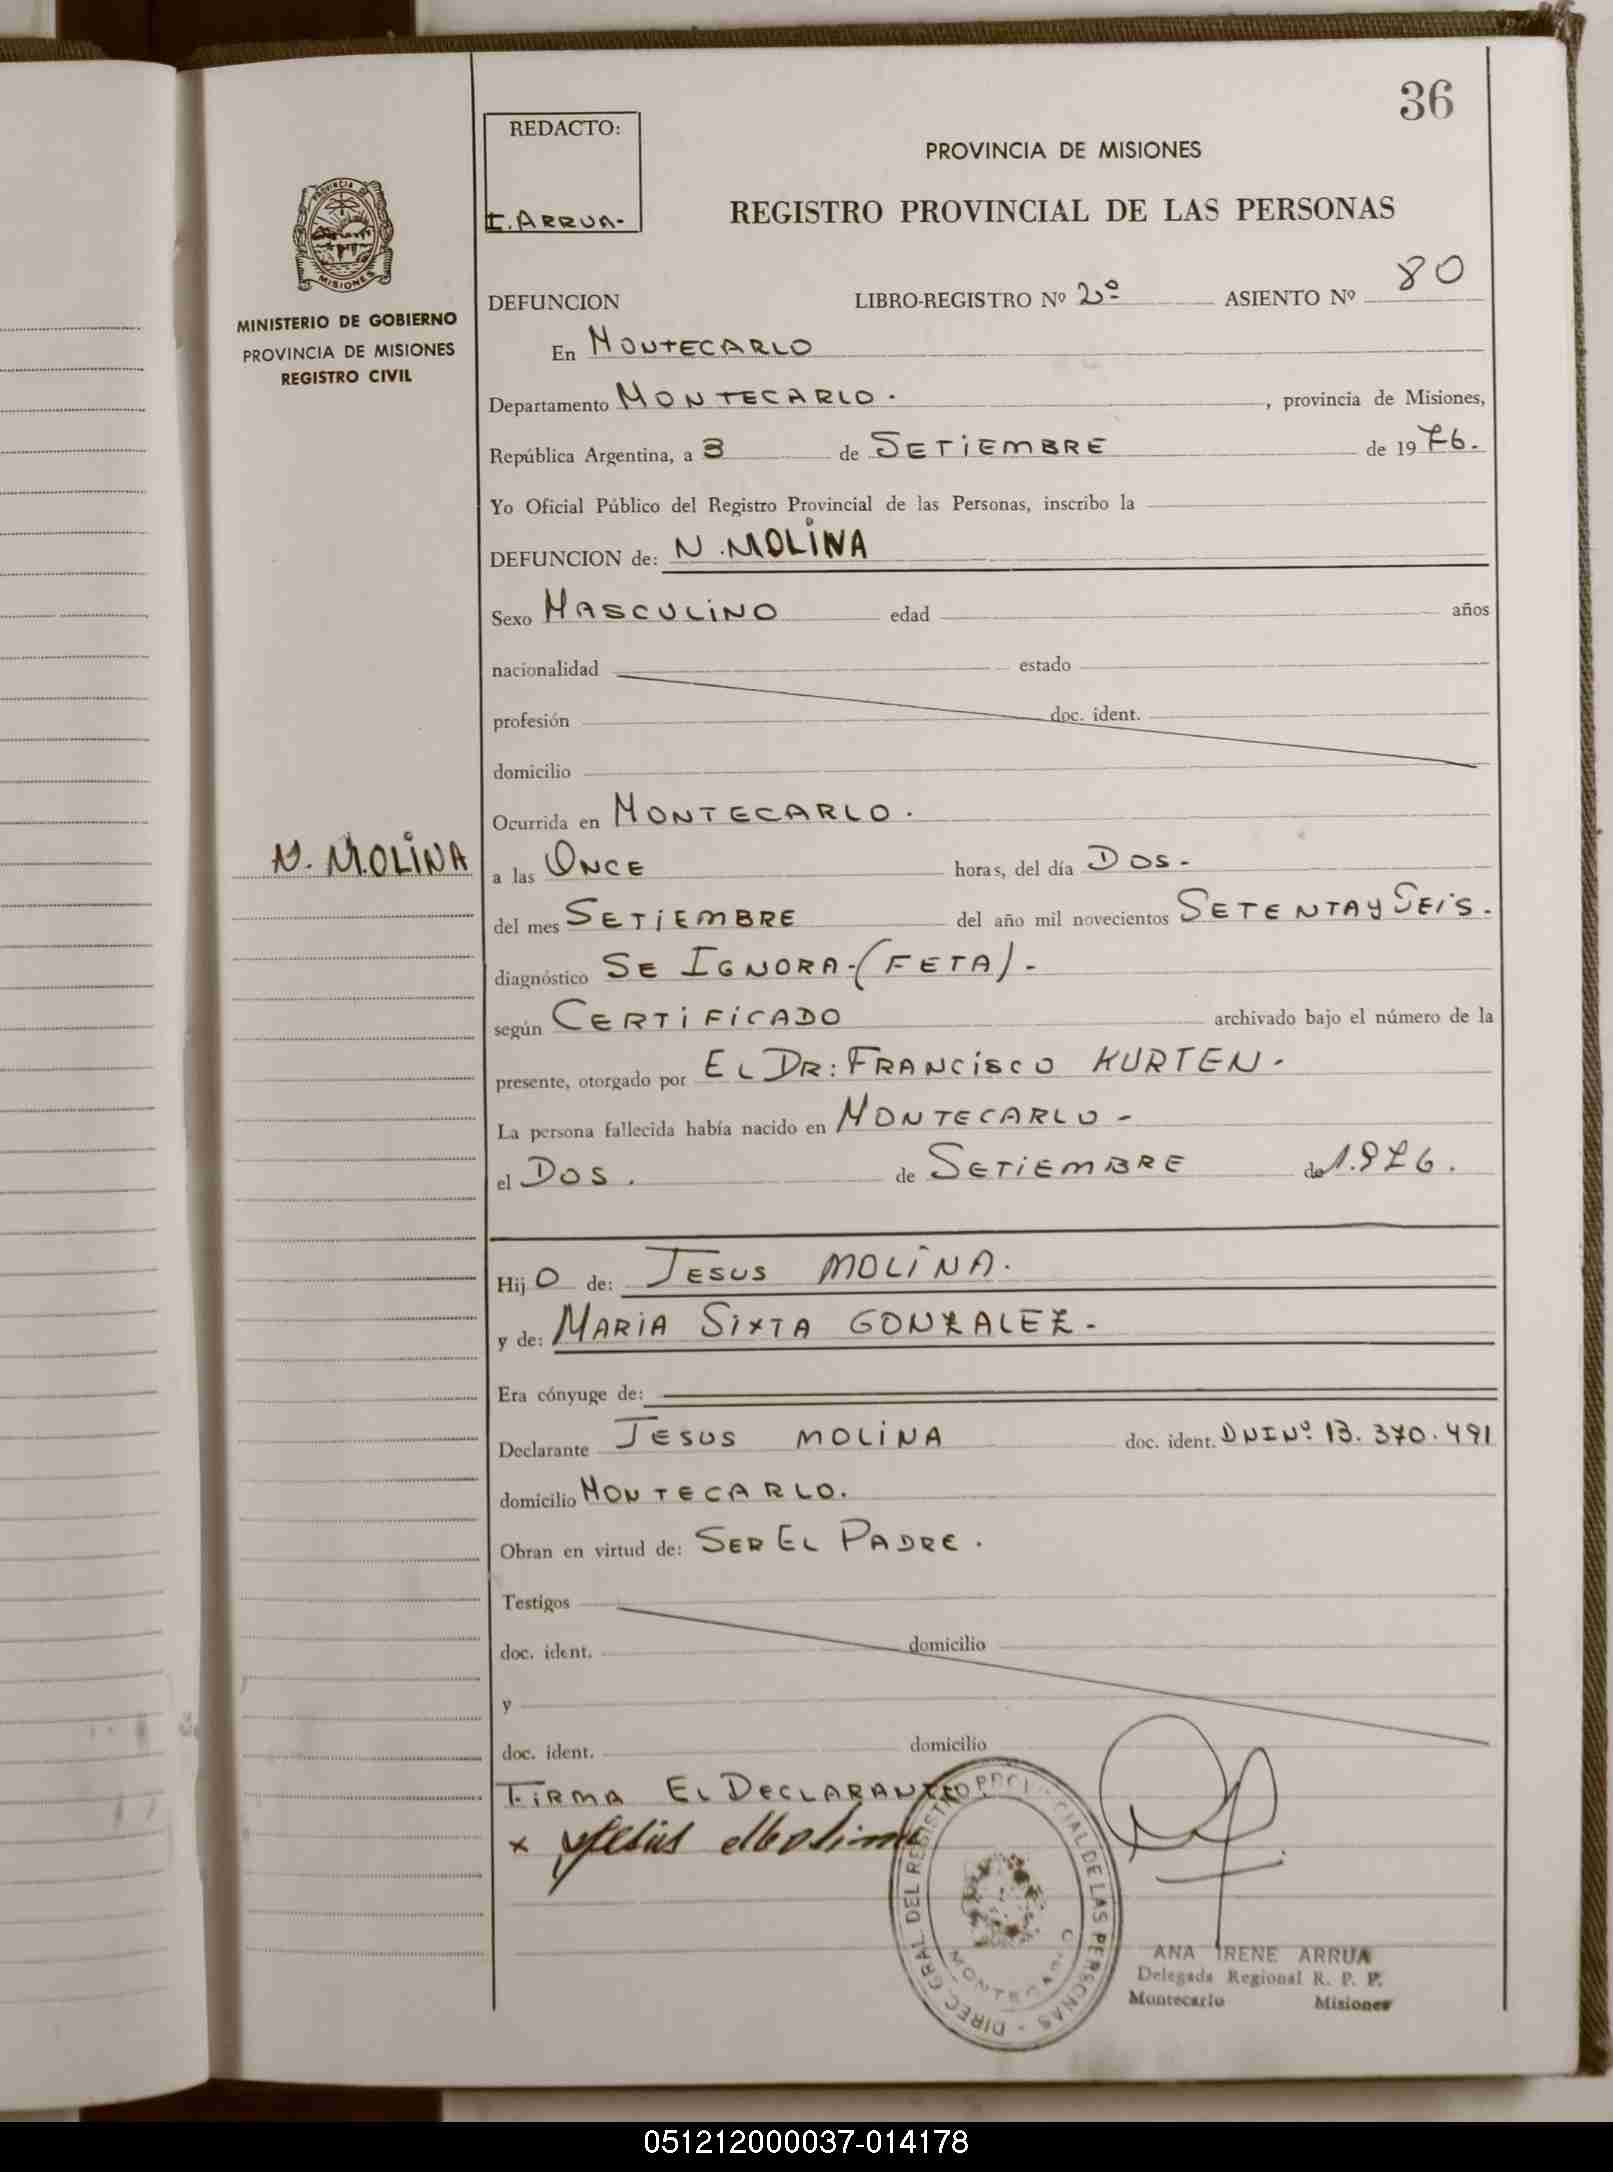 36
REDACTO:
I. ARRUA-
PROVINCIA DE MISIONES
REGISTRO PROVINCIAL DE LAS PERSONAS
PROVINCIA DE
MISIONES
MINISTERIO DE GOBIERNO
PROVINCIA DE MISIONES
REGISTRO CIVIL
DEFUNCION LIBRO-REGISTRO Nº 2º ASIENTO Nº 80
En MONTECARLO
Departamento MONTECARLO. , provincia de Misiones,
República Argentina, a 3 de SETIEMBRE de 1976.
Yo Oficial Público del Registro Provincial de las Personas, inscribo la
DEFUNCION de: N. MOLINA
Sexo MASCULINO edad años
nacionalidad estado
profesión doc. ident.
domicilio
Ocurrida en MONTECARLO.
N. MOLINA
a las ONCE horas, del día DOS-
del mes SETIEMBRE del año mil novecientos SETENTA Y SEIS.
diagnóstico SE IGNORA-(FETA).-
según CERTIFICADO archivado bajo el número de la
presente, otorgado por EL DR: FRANCISCO KURTEN.
La persona fallecida había nacido en MONTECARLO-
el DOS. de SETIEMBRE de 1.976.
Hij O de: JESUS MOLINA.
y de: MARIA SIXTA GONZALEZ-
Era cónyuge de:
Declarante JESUS MOLINA doc. ident. DNI Nº. 13.370.491
domicilio MONTECARLO.
Obran en virtud de: SER EL PADRE.
Testigos
doc. ident. domicilio
y
doc. ident. domicilio
FIRMA EL DECLARANTE
x Jesús Molina
DIREC. GRAL. DEL REGISTRO PROVINCIAL DE LAS PERSONAS -
MONTECARLO
ANA IRENE ARRUA
Delegada Regional R. P. P.
Montecarlo Misiones
051212000037-014178